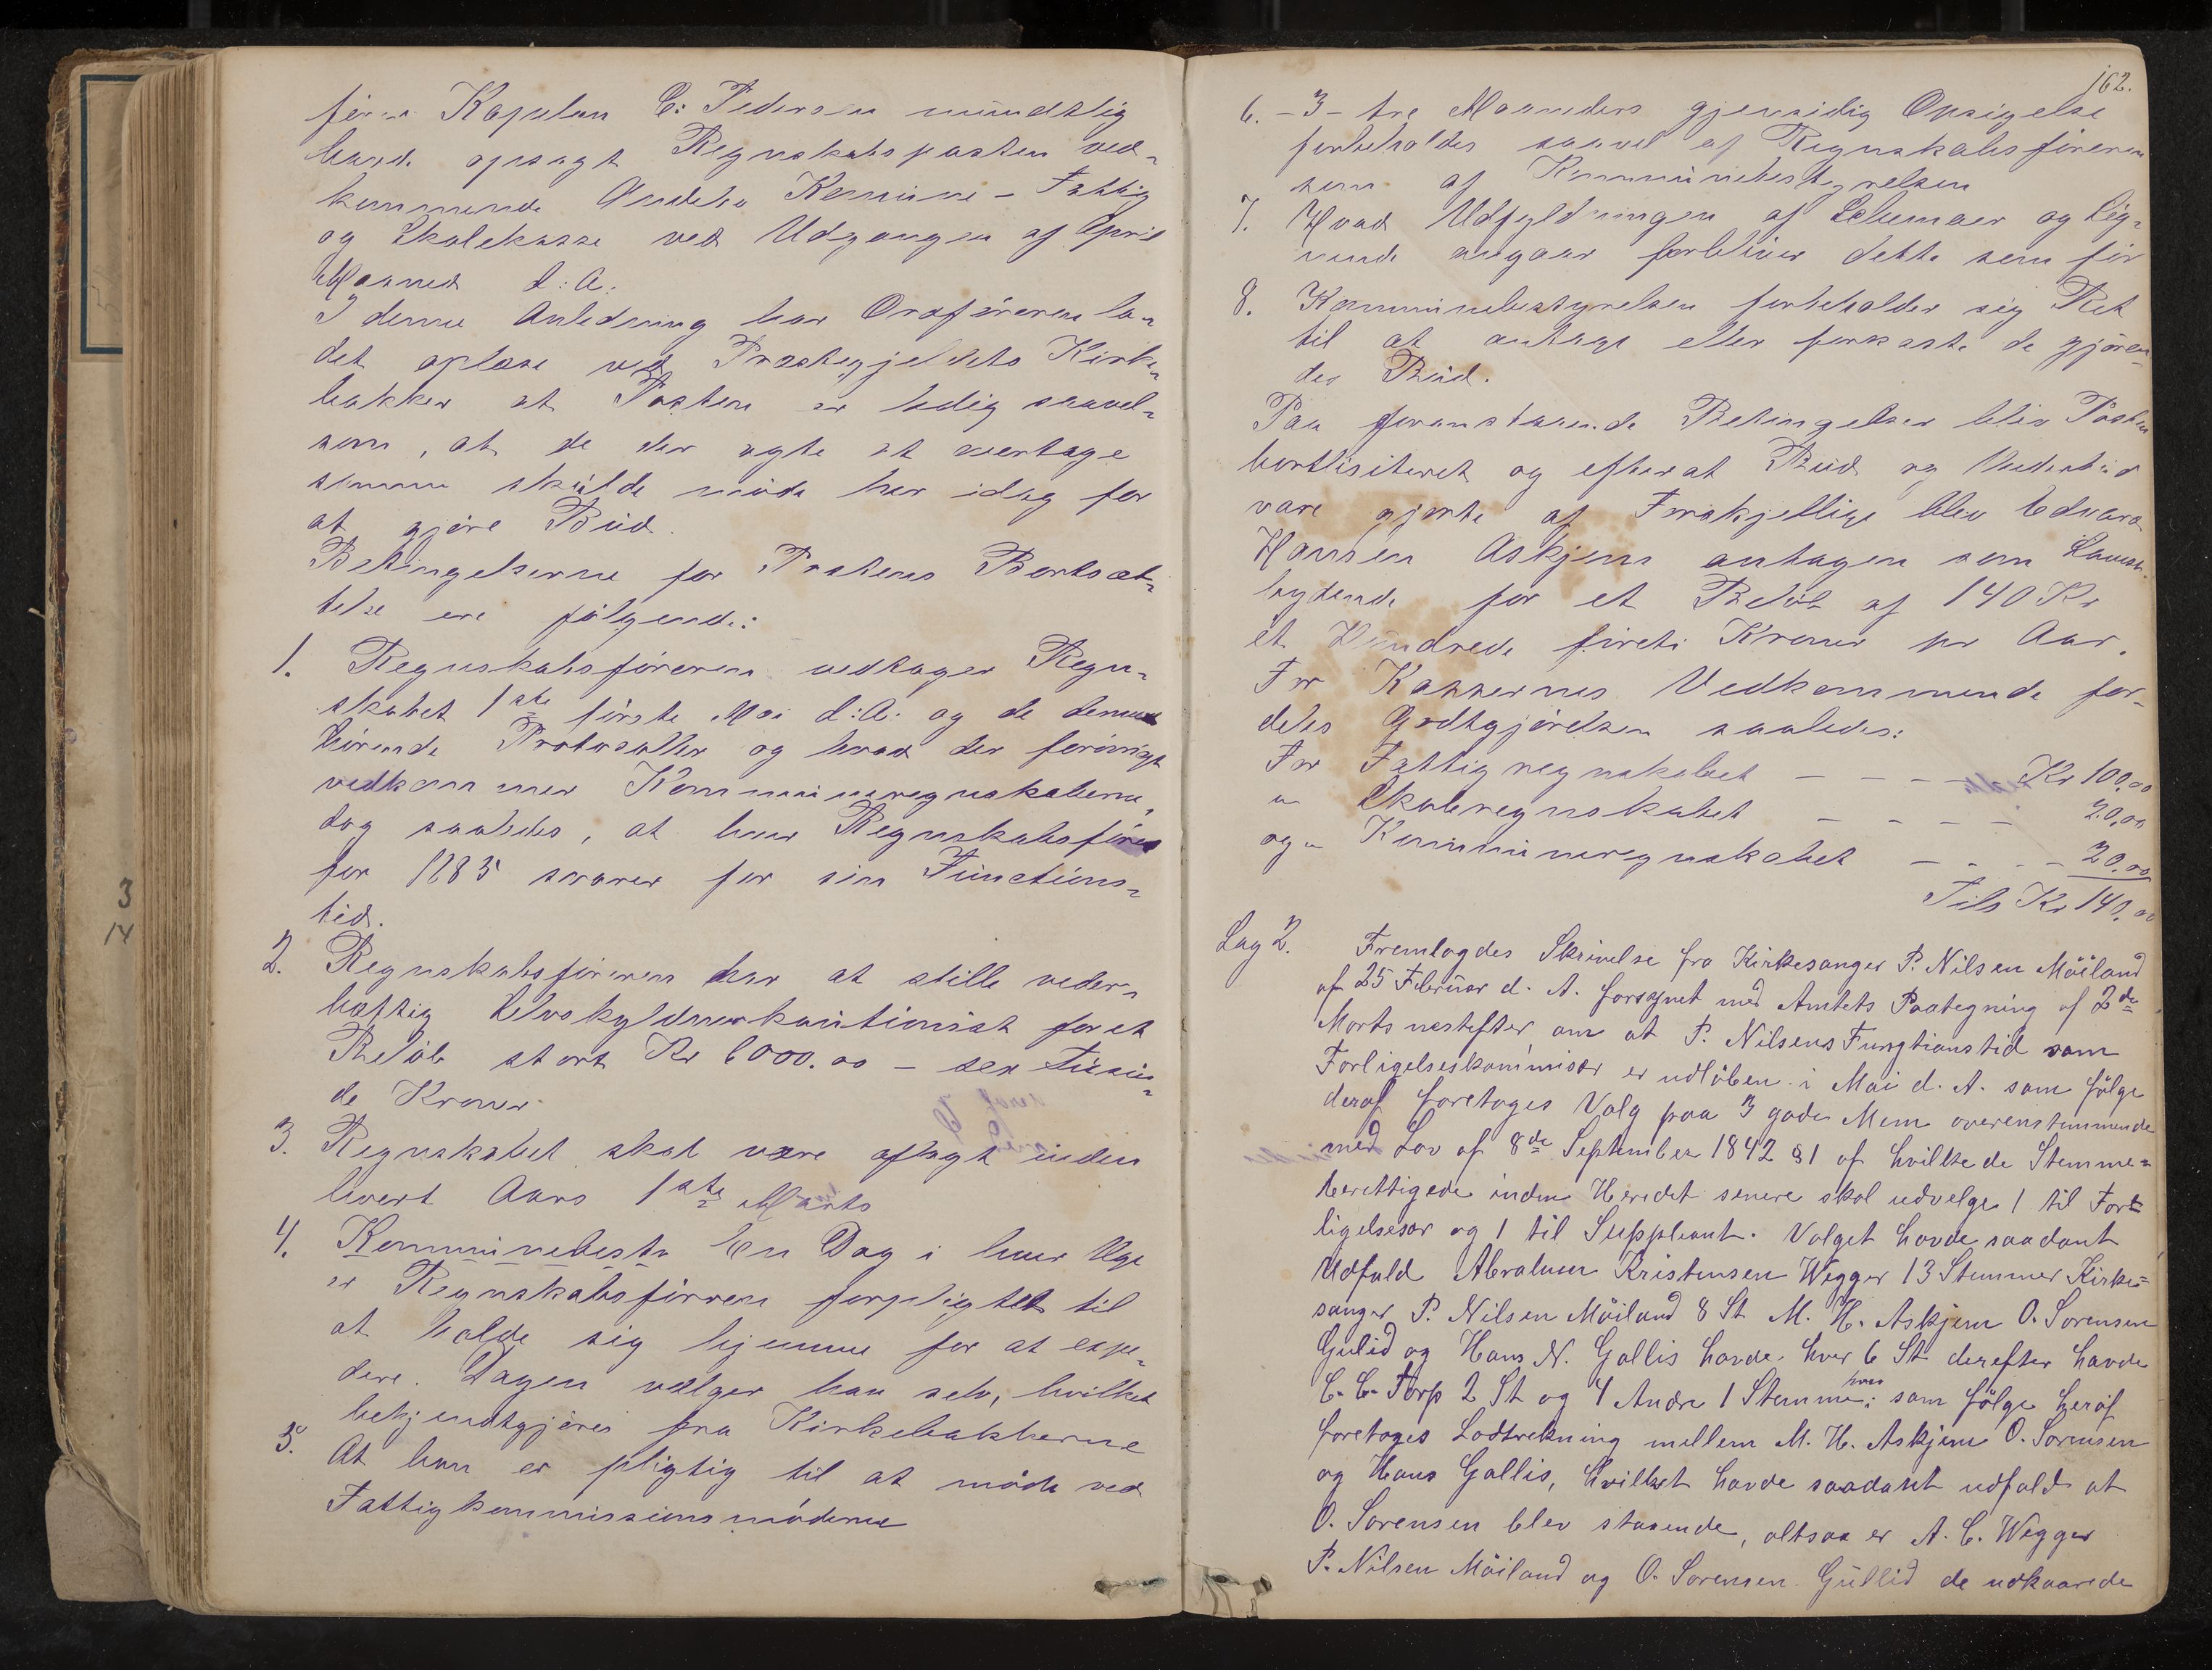 fører Kapelan C: Pedersen mündtlig
havde opsagt Regnskabsposten ved-
kommende Andebu Kommune - Fattig
og Skolekasse ved Udgangen af April
Maaned d:A:
I denne Anledning har Ordføreren la-
det oplæse ved Præstegjeldets Kirke-
bakker at Posten er ledig saavel-
som, at de der agte at overtage
samme skülde møde her idag for
at gjøre Büd.
Betingelserne for Postens Bortsæt-
telse ere følgende:
1. Regnskabsføreren vedtager Regn-
skabet 1ste første Mai d:A: og de dermed
hørende Protocoller og hvad der forøvrigt
vedkommer Kommüneregnskaberne,
dog saaledes, at hver Regnskabsfører
for 1885 svarer for sin Functions-
tid.
2. Regnskabsføreren har at stille veder-
hæftig Selvskyldnerkautionist for et
Beløb stort Kr 6000.00 - sex Tüsin-
de Kroner.
3. Regnskabet skal være aflagt inden
hvert Aars 1ste Marts
4. Kommünebesty En Dag i hver Uge
er Regnskabsføreren forpligtet til
at holde sig hjemme for at expe-
dere. Dagen vælger han selv, hvilket
bekjendtgjøres fra Kirkebakkerne
5. At han er pligtig til at møde ved
Fattigkommissionsmøderne
162.
6. -3- tre Maaneders gjensidig Opsigelse
forbeholdes saavel af Regnskabsføreren
som af Kommünebestyrelsen
7. Hvad Udfyldningen af Schemaer og lig-
nende angaar forbliver dette som før
8. Kommünebestyrelsen forbeholder sig Ret
til at antage eller forkaste de gjøren-
des Büd.
Paa foranstaaende Betingelser blev Posten
bortlisiteret og efterat Büd og Underbüd
vare gjorte af Forskjellige blev Edvard
Hansen Askjem antagen som Lavest-
bydende for et Beløb af 140 Kr
et Hündredeføreti Kroner pr Aar.
For Kassernes Vedkommende for-
deles Godtgjørelsen saaledes:
For Fattigregnskabet - - - - Kr 100,00
" Skoleregnskabet - - - - 20,00
og " Kommüneregnskabet - - - - 20,00
Tils Kr 140,00
Sag 2. Fremlagdes Skrivelse fra Kirkesanger P. Nilsen Möiland
af 25 Februar d. A. forsynet med Amtets Paategning af 2de
Marts nestefter om at P. Nilsens Fungtionstid som
Forligelseskommisær er udløben i Mai d. A. som følge
deraf foretages Valg paa 3 gode Mænd overenstemmende
med Lov af 8de September 1842 §1 af hvilke de Stemme-
berettigede inden Heredet senere skal udvelge 1 til Forli-
ligelsesær og 1 til Suppleant. Valget havde saadant
Udfald Abraham Kristensen Wegger 13 Stemmer Kirke-
sanger P. Nilsen Möiland 8 St M. H. Askjem O. Sorensen
Gulid og Hans N. Gallis havde hver 6 St derefter havde
C. C. Torp 2 St og 4 Andre 1 Stemme hver; som følge heraf
foretoges Lodtrekning mellem M. H. Askjem O. Sorensen
og Hans Gallis, hvilket havde saadant udfald at
O. Sorensen blev staaende, altsaa er A. C. Wegger
P. Nilsen Möiland og O. Sorensen Gullid de udkaarede
3
14